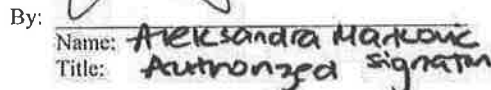 By:
Name: Aleksandra Markovic
Title: Authorized signatory